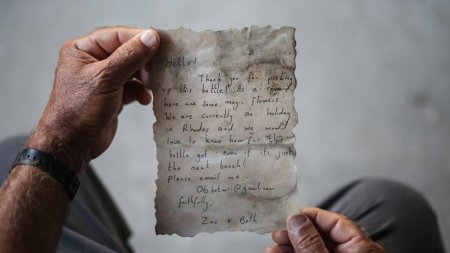 Hello!
Thank you for picking
up this bottle! As a reward
here are some magic flowers.
We are currently on holiday
in Rhodes and we would
love to know how far this
bottle got - even if its just
the next beach!
Please email me...
@gmail.com
faithfully.
Zac + Beth